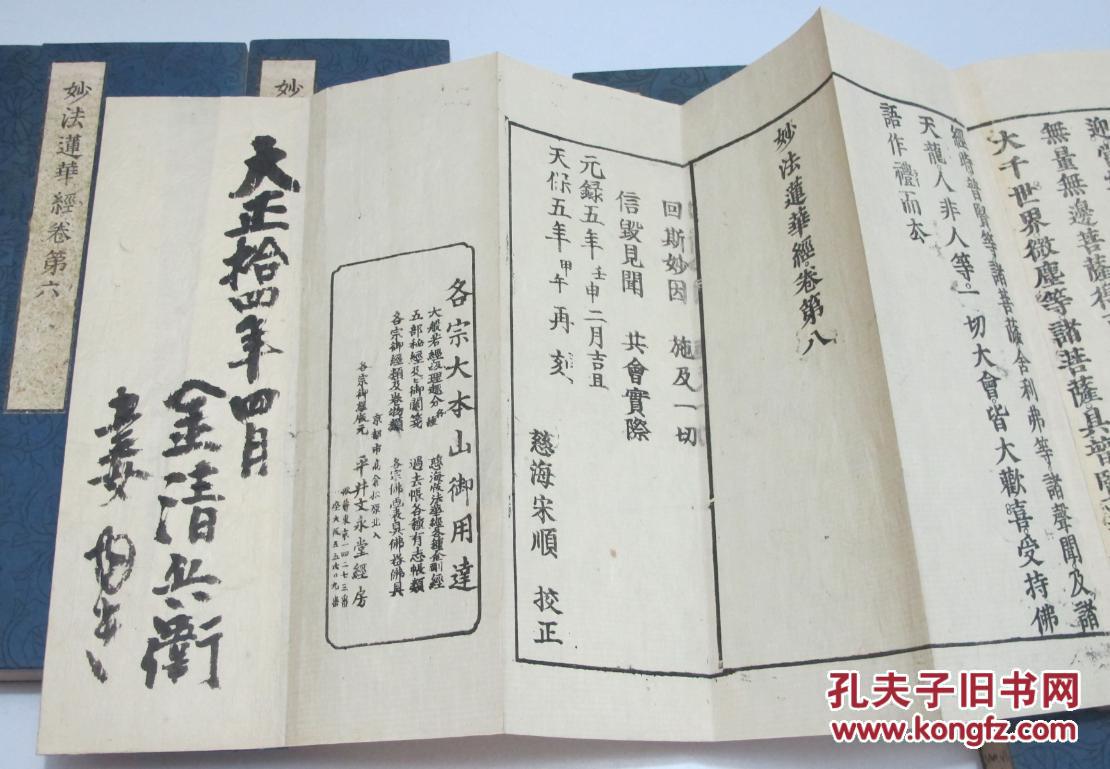 迎
無量無邊菩薩得
大千世界微塵等諸菩薩具普賢
經時普賢等諸菩薩舍利弗等諸聲聞及諸
天龍人非人等一切大會皆大歡喜受持佛
語作禮而去
妙法蓮華經卷第八
回斯妙因 施及一切
信毀見聞 共會實際
元録五年壬申二月吉旦
天保五年甲午再刻
慈海宋順 挍正
各宗大本山御用達
大般若經及理趣分各種
五部秘經及御蘭箋
各宗御經類及卷物類
慈海版法華經各種金剛經
過去帳各種有志帳類
各宗佛畫表具佛器佛具
京都市
各宗御藏版元 平井文永堂經房
大正拾四年四月
金清兵衛
妻
妙法蓮華經卷第六
妙
孔夫子旧书网
www.kongfz.com